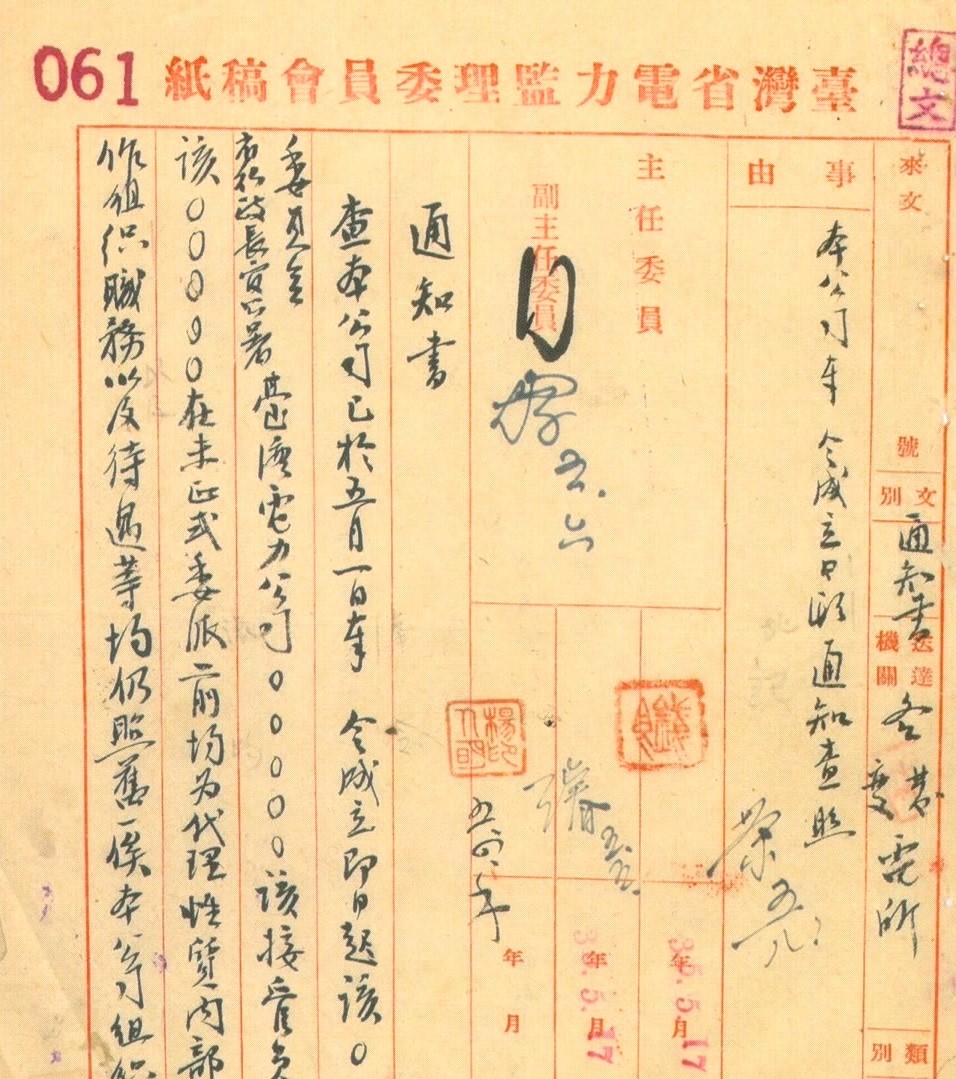 061
臺灣省電力監理委員會稿紙
總文
來文
號
文別
通知書
送達機關
各
變電所
類別
事由
本公司奉 令成立日期通知查照
主任委員
副主任委員
年月
年月
年月
35.5.17
35.5.17
通知書
查本公司已於五月一日奉 令成立即日起該○
委員會
長官公署臺灣電力公司○○○○○該接管
該○○○○○在未正式委派前均为代理性質内部
作組织職務以及待遇等均仍照舊俟本公司組织